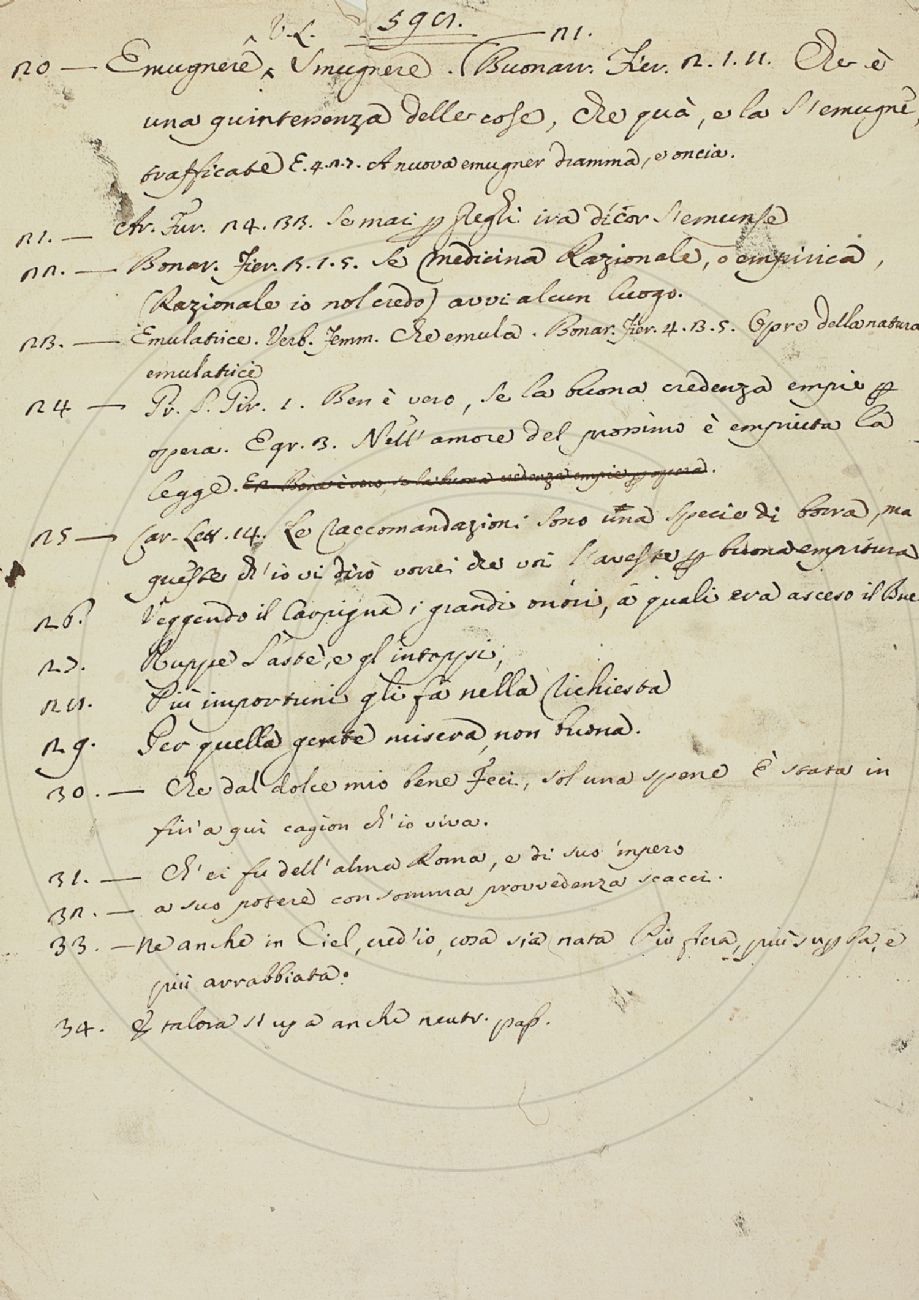 V. L. 5901. 21.
20 — Emugnere, Smugnere. (Buonarr. Fier. 2. 1. 11. Che è
una quintessenza delle cose, che quà, e la s'emugne,
trafficate E. 4. 2. 7. A nuova emugner dramma, e oncia.
21. — Ar. Fur. 24. 33. Se mai p slegli ira di cor s'emunse
22. — Bonar. Fier. 3. 1. 5. Se (medicina Razionale, o empirica,
(Razionale io nol credo) avvi alcun luogo.
23. — Emulatrice. Verb. Femm. Che emula. Bonar. Fier. 4. 3. 5. Opre della natura
emulatrice
24 — Pr. S. Gir. 1. Ben è vero, se la buona credenza empie p
opera. E qr. 3. Nell' amore del prossimo è empiuta la
legge. E q. Bene è vero, se la buona credenza empie p opera.
25 — Car. Lett. 14. Le raccomandazioni sono una specie di borra, ma
queste ch'io vi dirò vorrei che voi l'aveste p buona empitura
26. Veggendo il Carpigna i grandi onori, a quali era asceso il Bue
27. Ruppe l'aste, e gl'intoppi,
28. Più importuni gli fa nella richiesta
29. Per quella gente misera, non buona.
30. — Che dal dolce mio bene Feci, sol una spene È stata in
fin' a qui cagion ch'io viva.
31. — Ch'ei fu dell'alma Roma, e di suo 'mpero
32. — a suo potere con somma provvedenza scacci.
33. — Ne anche in Ciel, cred'io, cosa sia nata Più fiera, più supba, e
più arrabbiata.
34. E talora si usa anche neutr. pass.